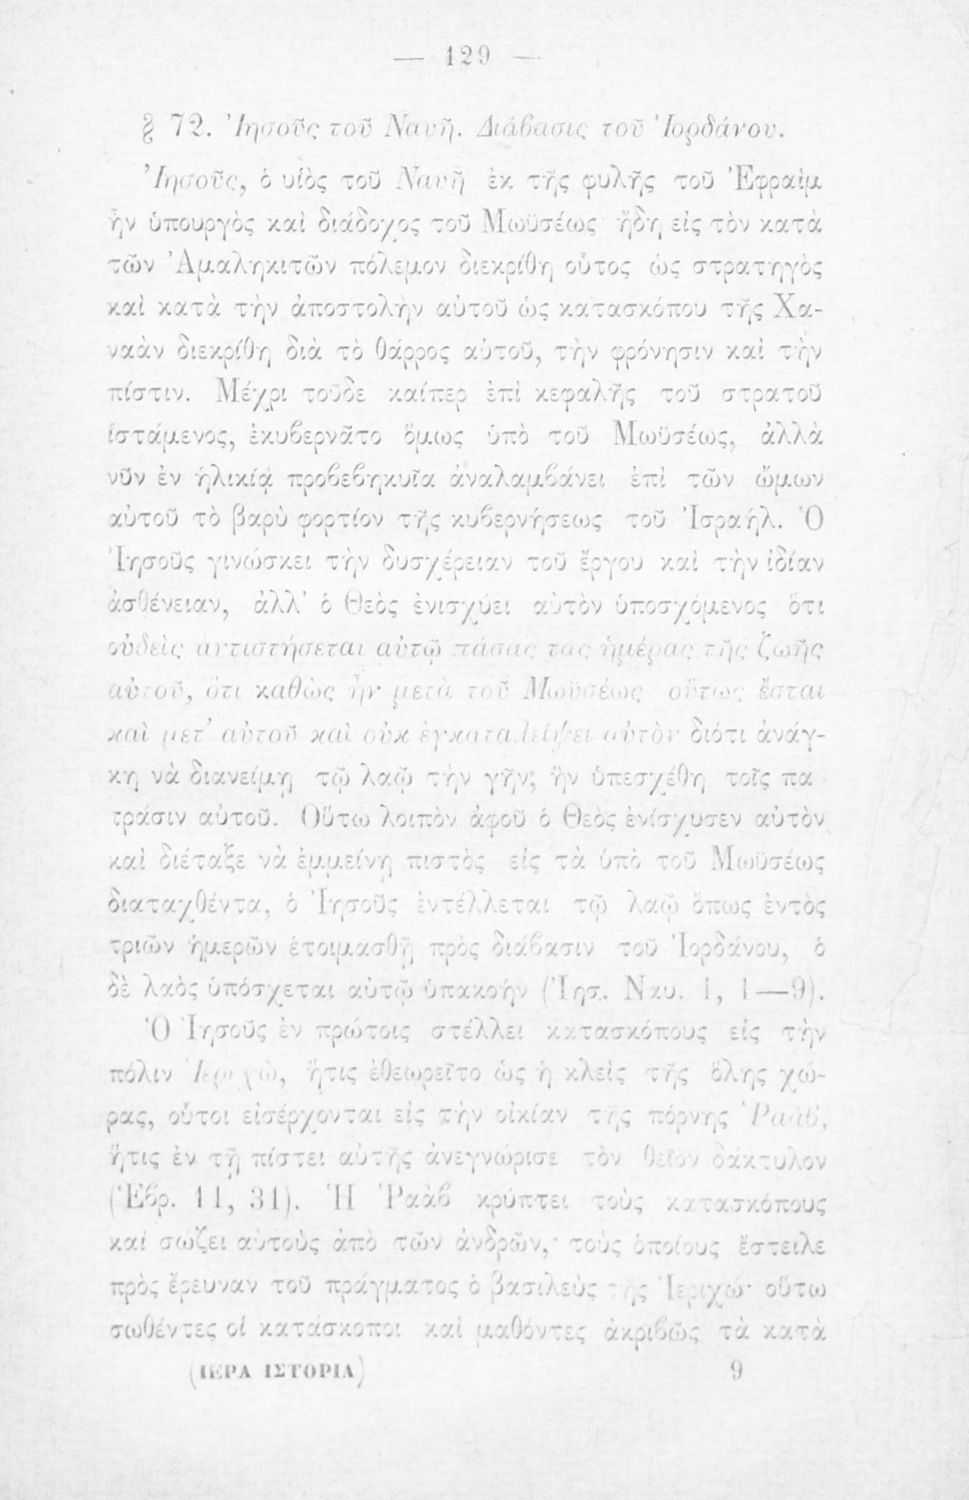 — 129 —
§ 72. Ἰησοῦς τοῦ Ναυῆ. Διάβασις τοῦ Ἰορδάνου.
Ἰησοῦς, ὁ υἱὸς τοῦ Ναυῆ ἐκ τῆς φυλῆς τοῦ Ἐφραὶμ
ἦν ὑπουργὸς καὶ διάδοχος τοῦ Μωϋσέως· ἤδη εἰς τὸν κατὰ
τῶν Ἀμαληκιτῶν πόλεμον διεκρίθη οὗτος ὡς στρατηγὸς
καὶ κατὰ τὴν ἀποστολὴν αὐτοῦ ὡς κατασκόπου τῆς Χα-
ναὰν διεκρίθη διὰ τὸ θάρρος αὐτοῦ, τὴν φρόνησιν καὶ τὴν
πίστιν. Μέχρι τοῦδε καίπερ ἐπὶ κεφαλῆς τοῦ στρατοῦ
ἱστάμενος, ἐκυβερνᾶτο ὅμως ὑπὸ τοῦ Μωϋσέως, ἀλλὰ
νῦν ἐν ἡλικίᾳ προβεβηκυῖα ἀναλαμβάνει ἐπὶ τῶν ὤμων
αὐτοῦ τὸ βαρὺ φορτίον τῆς κυβερνήσεως τοῦ Ἰσραήλ. Ὁ
Ἰησοῦς γινώσκει τὴν δυσχέρειαν τοῦ ἔργου καὶ τὴν ἰδίαν
ἀσθένειαν, ἀλλ' ὁ Θεὸς ἐνισχύει αὐτὸν ὑποσχόμενος ὅτι
οὐδεὶς ἀντιστήσεται αὐτῷ πάσας τὰς ἡμέρας τῆς ζωῆς
αὐτοῦ, ὅτι καθὼς ἦν μετὰ τοῦ Μωϋσέως οὕτως ἔσται
καὶ μετ' αὐτοῦ καὶ οὐκ ἐγκαταλείψει αὐτὸν διότι ἀνάγ-
κη νὰ διανείμῃ τῷ λαῷ τὴν γῆν, ἣν ὑπεσχέθη τοῖς πα
τράσιν αὐτοῦ. Οὕτω λοιπὸν ἀφοῦ ὁ Θεὸς ἐνίσχυσεν αὐτὸν
καὶ διέταξε νὰ ἐμμείνῃ πιστὸς εἰς τὰ ὑπὸ τοῦ Μωϋσέως
διαταχθέντα, ὁ Ἰησοῦς ἐντέλλεται τῷ λαῷ ὅπως ἐντὸς
τριῶν ἡμερῶν ἑτοιμασθῇ πρὸς διάβασιν τοῦ Ἰορδάνου, ὁ
δὲ λαὸς ὑπόσχεται αὐτῷ ὑπακοήν (Ἰησ. Ναυ. 1, 1—9).
Ὁ Ἰησοῦς ἐν πρώτοις στέλλει κατασκόπους εἰς τὴν
πόλιν Ἱεριχὼ, ἥτις ἐθεωρεῖτο ὡς ἡ κλεὶς τῆς ὅλης χώ-
ρας, οὗτοι εἰσέρχονται εἰς τὴν οἰκίαν τῆς πόρνης Ῥαάβ,
ἥτις ἐν τῇ πίστει αὐτῆς ἀνεγνώρισε τὸν θεῖον δάκτυλον
(Ἑβρ. 11, 31). Ἡ Ῥαὰβ κρύπτει τοὺς κατασκόπους
καὶ σώζει αὐτοὺς ἀπὸ τῶν ἀνδρῶν, τοὺς ὁποίους ἔστειλε
πρὸς ἔρευναν τοῦ πράγματος ὁ βασιλεὺς τῆς Ἱεριχώ· οὕτω
σωθέντες οἱ κατάσκοποι καὶ μαθόντες ἀκριβῶς τὰ κατὰ
(ΙΕΡΑ ΙΣΤΟΡΙΑ) 9